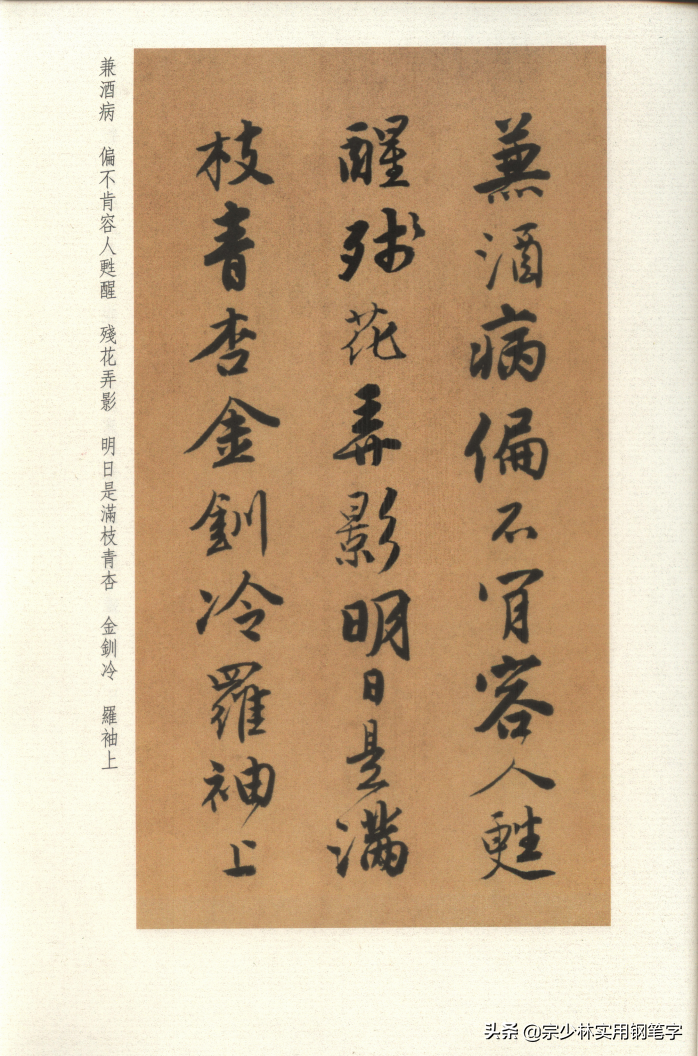 兼酒病偏不肯容人甦
醒殘花弄影明日是滿
枝青杏金釧冷羅袖上
兼酒病 偏不肯容人甦醒 殘花弄影 明日是滿枝青杏 金釧冷 羅袖上
头条 @宗少林实用钢笔字